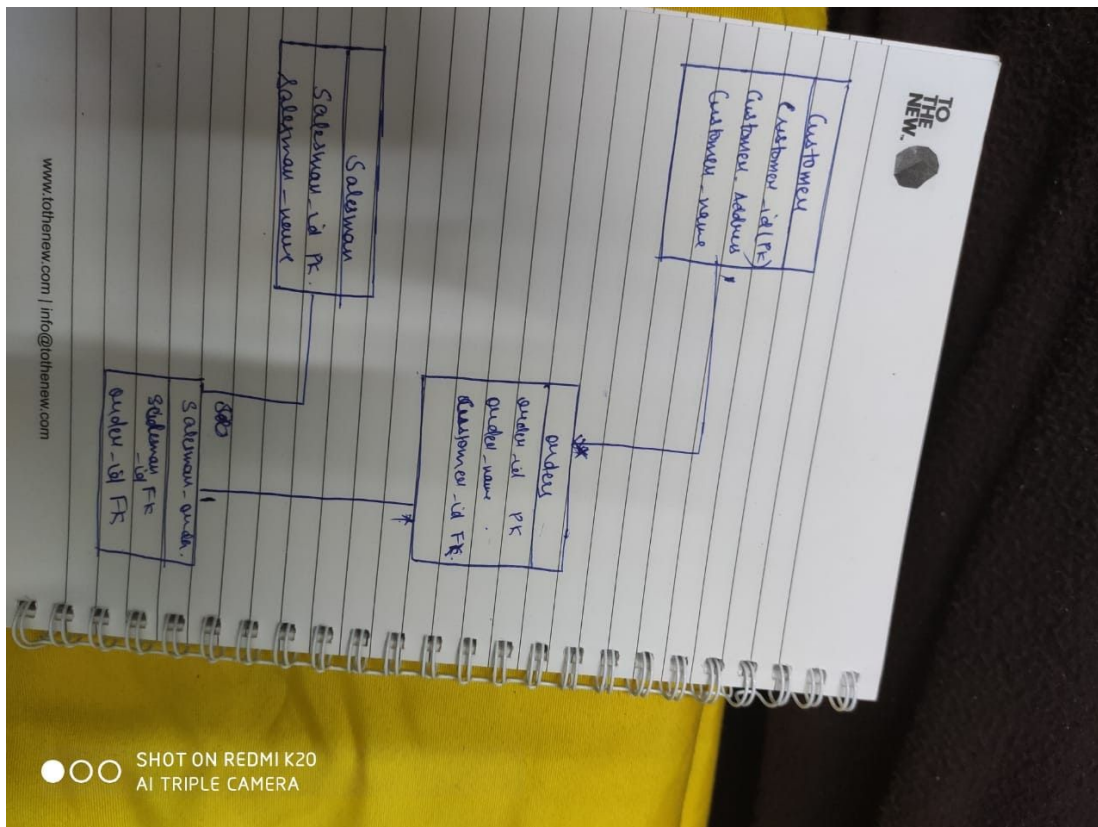 TO
THE
NEW.
Customer
Customer_id(PK)
Customer_Address
Customer_name
1
orders
order_id PK
order_name
Customer_id FK.
*
*
Salesman
Salesman_id PK.
Salesman_name
Salesman_order.
Salesman FK
_id
order_id FK
1
www.tothenew.com | info@tothenew.com
SHOT ON REDMI K20
AI TRIPLE CAMERA